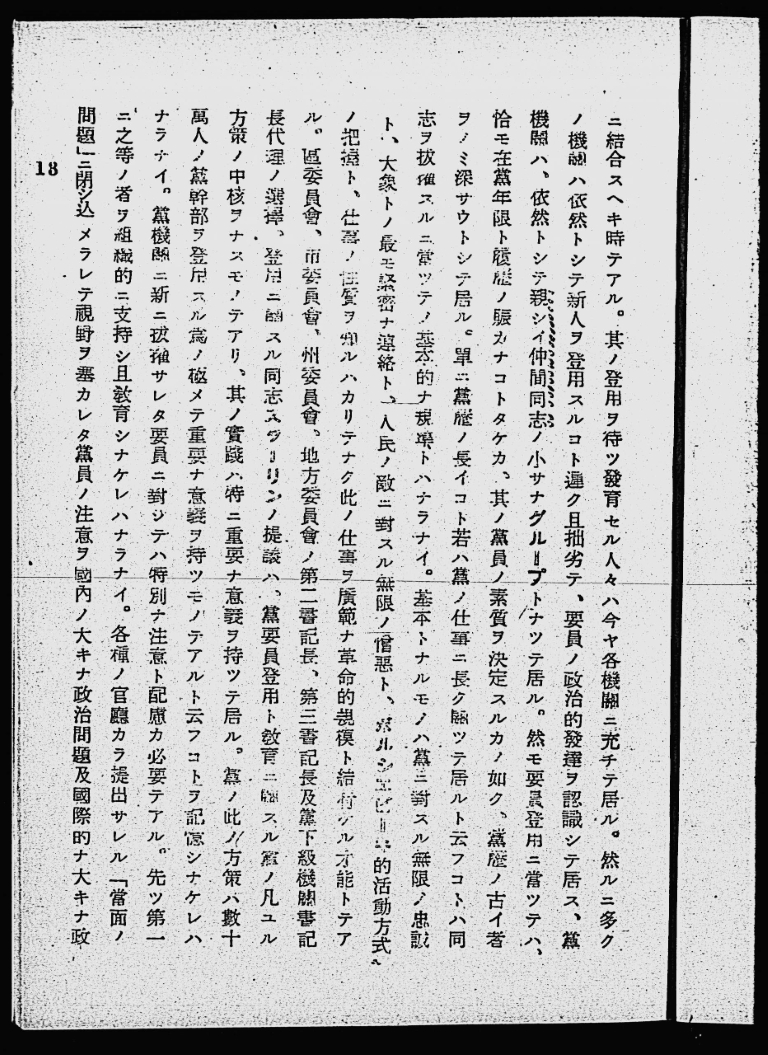 ニ結合スヘキ時テアル。其ノ登用ヲ待ツ發育セル人々ハ今ヤ各機關ニ充チテ居ル。然ルニ多ク
ノ機關ハ依然トシテ新人ヲ登用スルコト遲ク且拙劣テ、要員ノ政治的發達ヲ認識シテ居ス、黨
機關ハ、依然トシテ親シイ仲間同志ノ小サナグループトナツテ居ル。然モ要員登用ニ當ツテハ、
恰モ在黨年限ト履歴ノ賑カナコトタケカ、其ノ黨員ノ素質ヲ決定スルカノ如ク、黨歷ノ古イ者
ヲノミ深サウトシテ居ル。單ニ黨歷ノ長イコト若ハ黨ノ仕事ニ長ク關ツテ居ルト云フコトハ同
志ヲ拔擢スルニ當ツテノ基本的ナ規準トハナラナイ。基本トナルモノハ黨ニ對スル無限ノ忠誠
ト、大衆トノ最モ緊密ナ連絡ト、人民ノ敵ニ對スル無限ノ憎惡ト、ボルシエビーキ的活動方式
ノ把握ト、仕事ノ性質ヲ知ルハカリテナク此ノ仕事ヲ廣範ナ革命的規模ト結付ケル才能トテア
ル。區委員會、市委員會、州委員會、地方委員會ノ第二書記長、第三書記長及黨下級機關書記
長代理ノ選擇、登用ニ關スル同志スターリンノ提議ハ、黨要員登用ト敎育ニ關スル黨ノ凡ユル
方策ノ中核ヲナスモノテアリ、其ノ實踐ハ特ニ重要ナ意義ヲ持ツテ居ル。黨ノ此ノ方策ハ數十
萬人ノ黨幹部ヲ登用スル爲ノ極メテ重要ナ意義ヲ持ツモノテアルト云フコトヲ記憶シナケレハ
ナラナイ。黨機關ニ新ニ拔擢サレタ要員ニ對シテハ特別ナ注意ト配慮カ必要テアル。先ツ第一
ニ之等ノ者ヲ組織的ニ支持シ且敎育シナケレハナラナイ。各種ノ官廳カラ提出サレル「當面ノ
問題」ニ閉シ込メラレテ視野ヲ塞カレタ黨員ノ注意ヲ國內ノ大キナ政治問題及國際的ナ大キナ政
18